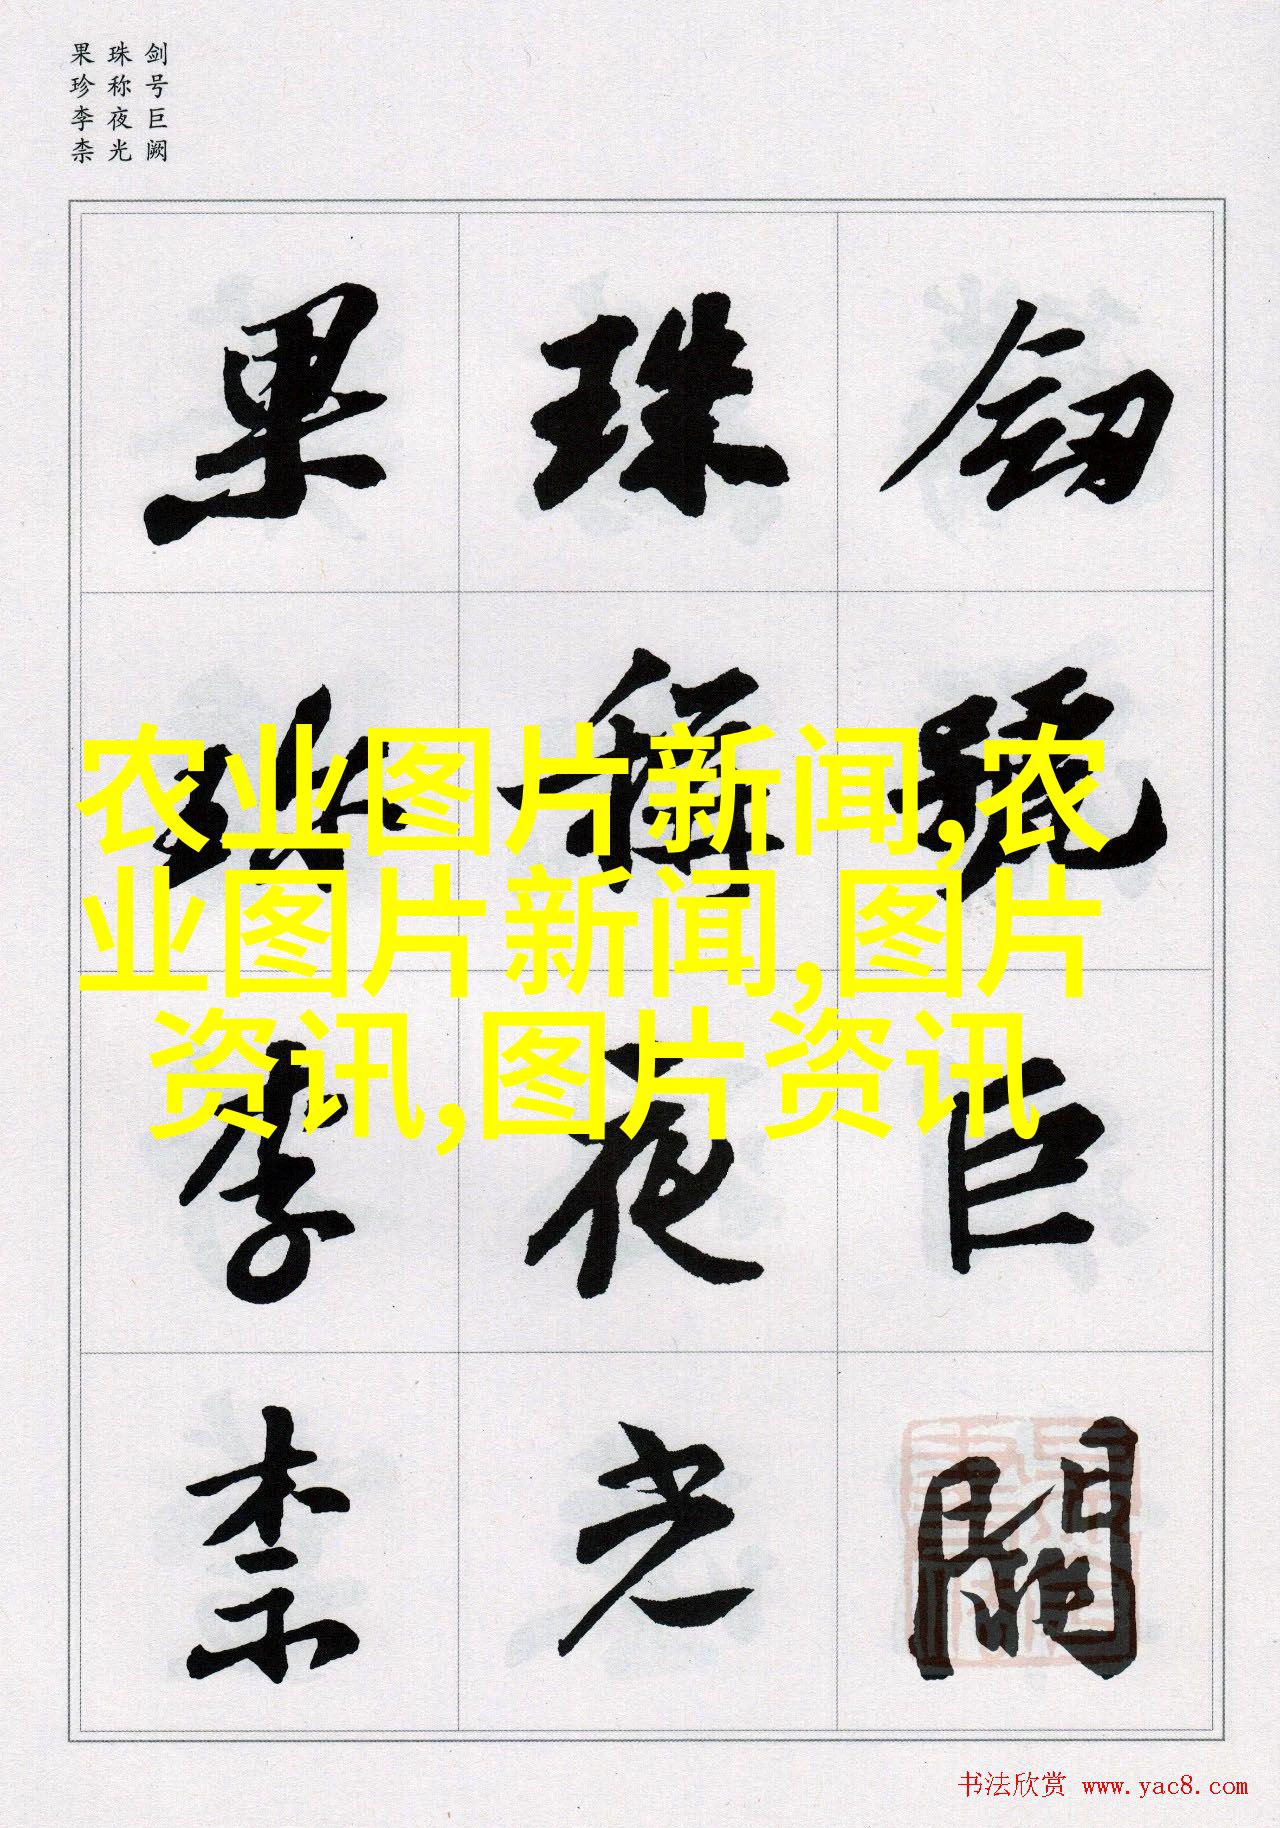 剑号巨阙
珠称夜光
果珍李柰
釼號巨闕
珠稱夜光
果珎李柰
农业图片新闻,农
业图片新闻,图片
资讯,图片资讯
书法欣赏 www.yac8.com